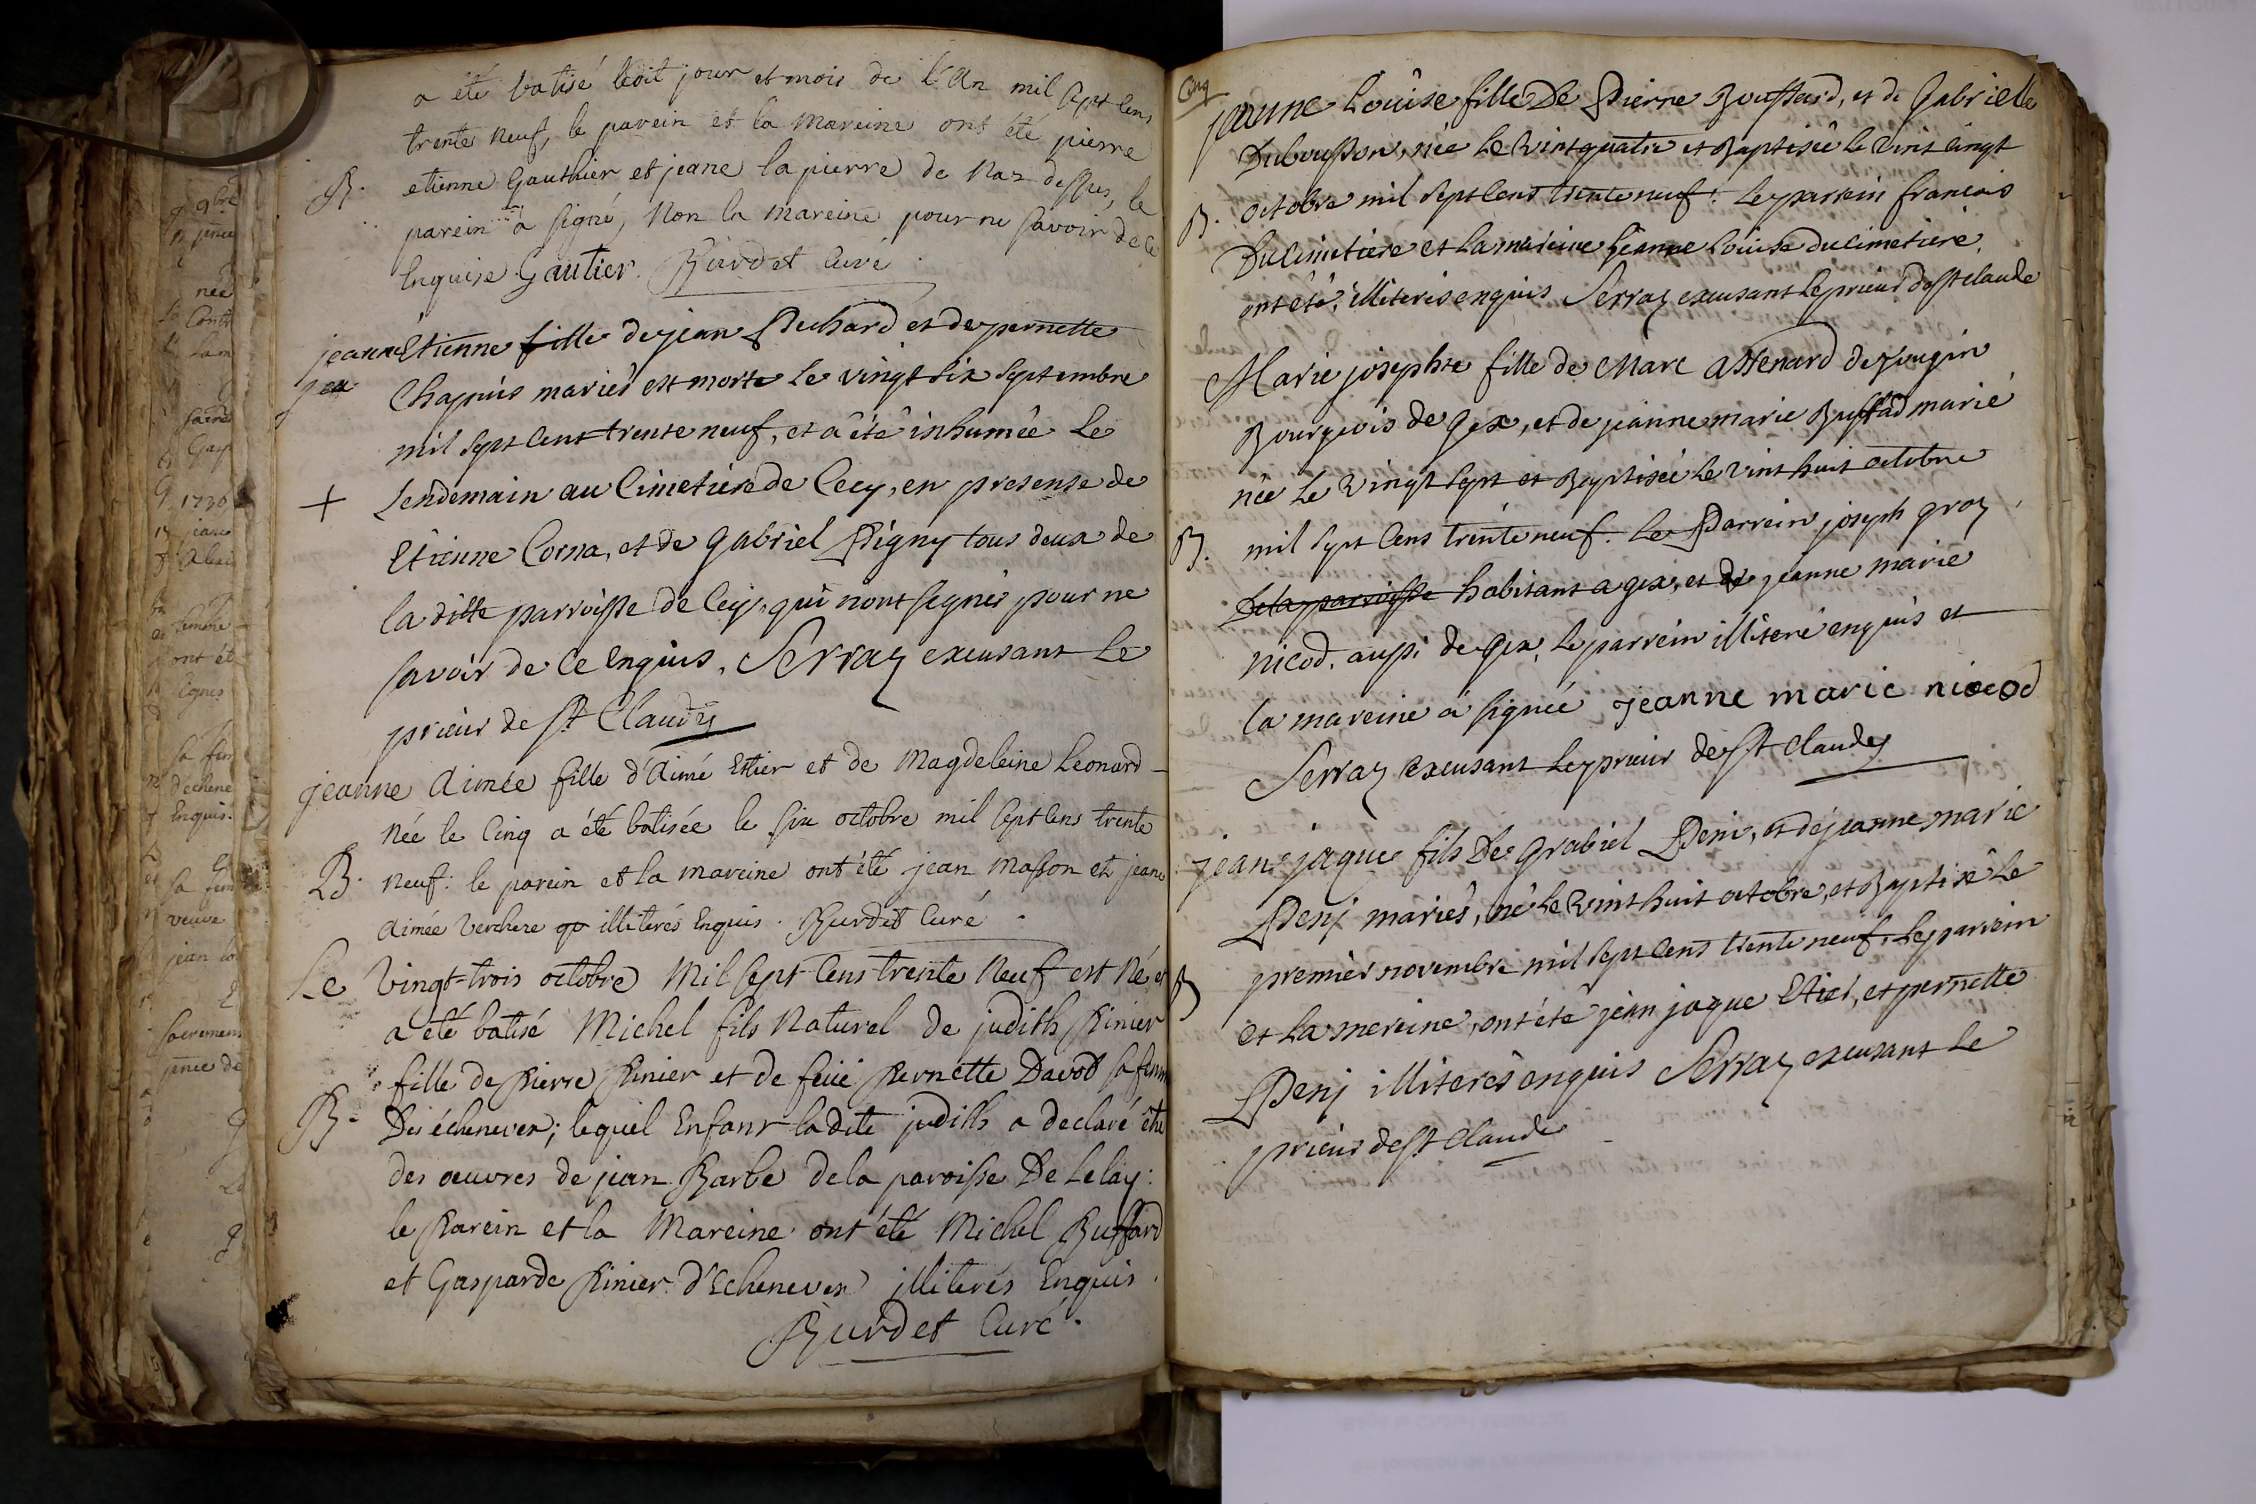 a été batisé ledit jour et mois de l'An mil sept cens
trente neuf, le parein et la mareine ont été pierre
B. etienne Gauthier et jeane la pierre de Naz dessus, le
parein a signé, Non la mareine pour ne savoir de ce
Enquise. Gautier. Burdet Curé
jeanne Etienne fille de jean Duchard et de pernette
Chapuis mariés est morte le vingt six septembre
mil sept cent trente neuf, et a été inhumée le
+ Lendemain au Cimetiere de Cecy, en presense de
Etienne Corna, et de gabriel Prigny tous deux de
la ditte parroisse de Cecy, qui n'ont signés pour ne
savoir de ce enquis, Serraz excusant Le
prieur de st Claude
jeanne Aimée fille d'Aimé Etier et de Magdeleine Leonard
Née le Cinq a été batisée le six octobre mil sept cens trente
B. neuf: le parein et la mareine ont été jean Masson et jeane
Aimée Verchere illiterés Enquis. Burdet Curé.
Le Vingt-trois octobre Mil sept cens trente Neuf est Né, et
a été batisé Michel fils Naturel de judith Pinier
fille de Pierre Pinier et de feüe Pernette Davod sa femme
B. D'échenevex; lequel Enfant ladite judith a declaré être
des œuvres de jean Barbe de la paroisse De Lelay:
le Parein et la Mareine ont été Michel Buffard
et Gasparde Pinier d'Echenevex illiterés Enquis.
Burdet Curé.
Cinq
jeanne Louise fille De Pierre Bouffard, et de Gabrielle
Dubousson, née le Vint quatre et Baptisée le Vint cinqt
B. octobre mil sept cens trente neuf. Le parrein francois
Ducimetiere et la mareine jeanne Louise ducimetiere,
ont été, illiterés enquis Serraz excusant Le prieur de st claude
Marie josephte fille de Marc de jougin
Bourgeois de Gex, et de jeanne marie Buffad marié
née Le Vingt sept et Baptisée le Vint huit octobre
B. mil sept cens trente neuf. Le Parrein joseph groz
De la parroisse habitant a gex, et de jeanne marie
Nicod, aussi de Gex, Le parrein illiteré enquis et
la mareine a signée jeanne marie nicod
Serraz excusant Le prieur de st claude
jean jaque fils De grabiel Peni, et de jeanne marie
Penj mariés, né Le Vint huit octobre, et Baptisé Le
B premier novembre mil sept cens trente neuf. Le parrein
et La mereine, ont été jean jaque Etier, et pernette
Penj illiterés enquis Serraz excusant Le
prieur de st claude